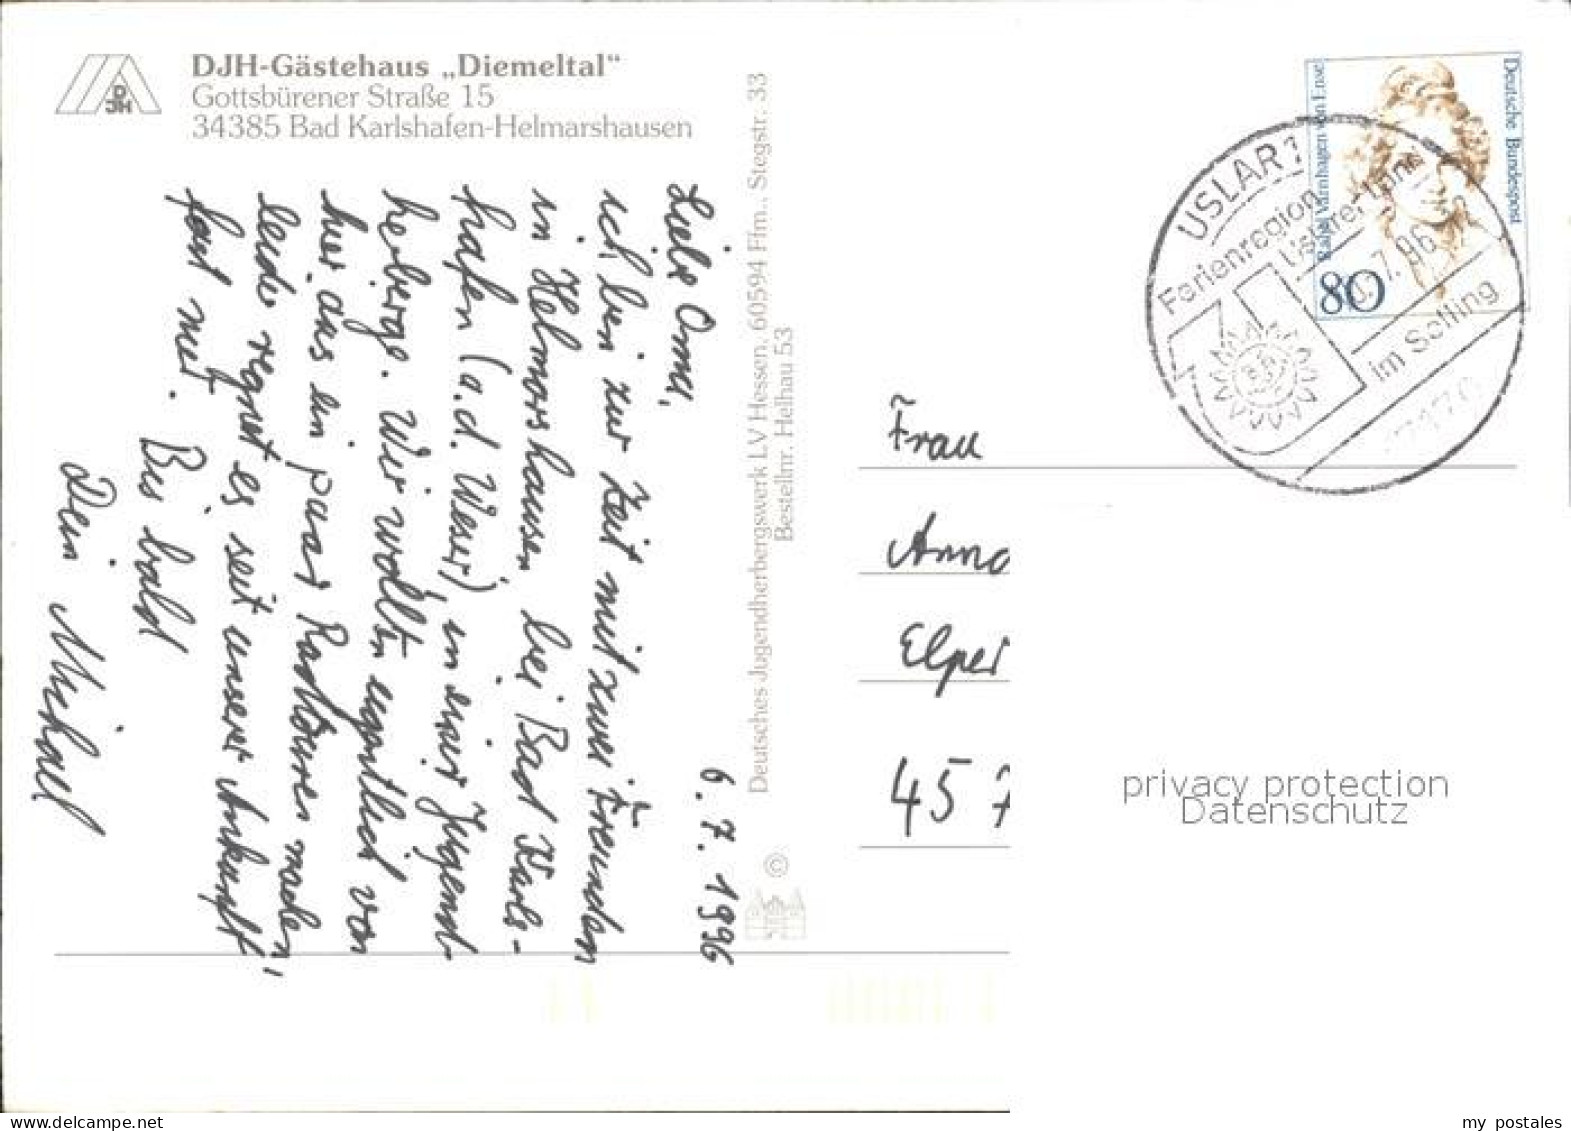 DJH
DJH-Gästehaus „Diemeltal“
Gottsbürener Straße 15
34385 Bad Karlshafen-Helmarshausen
6.7.1996
Liebe Oma,
ich bin zur Zeit mit zwei Freunden
in Helmarshausen bei Bad Karls-
hafen (a.d. Weser), in einer Jugend-
herberge. Wir wollten eigentlich von
hier aus ein paar Radtouren machen,
leider regnet es seit unserer Ankunft
fast nur. Bis bald
Dein Michael
Deutsches Jugendherbergswerk LV Hessen, 60594 Ffm., Stegstr. 33
Bestellnr. Helhau 53
©
Deutsche Bundespost
Rahel Varnhagen von Ense
80
USLAR 1
Ferienregion
Uslarer Land
.7.96
im Solling
Frau
Anna
Elper
45 7
privacy protection
Datenschutz
my_postales